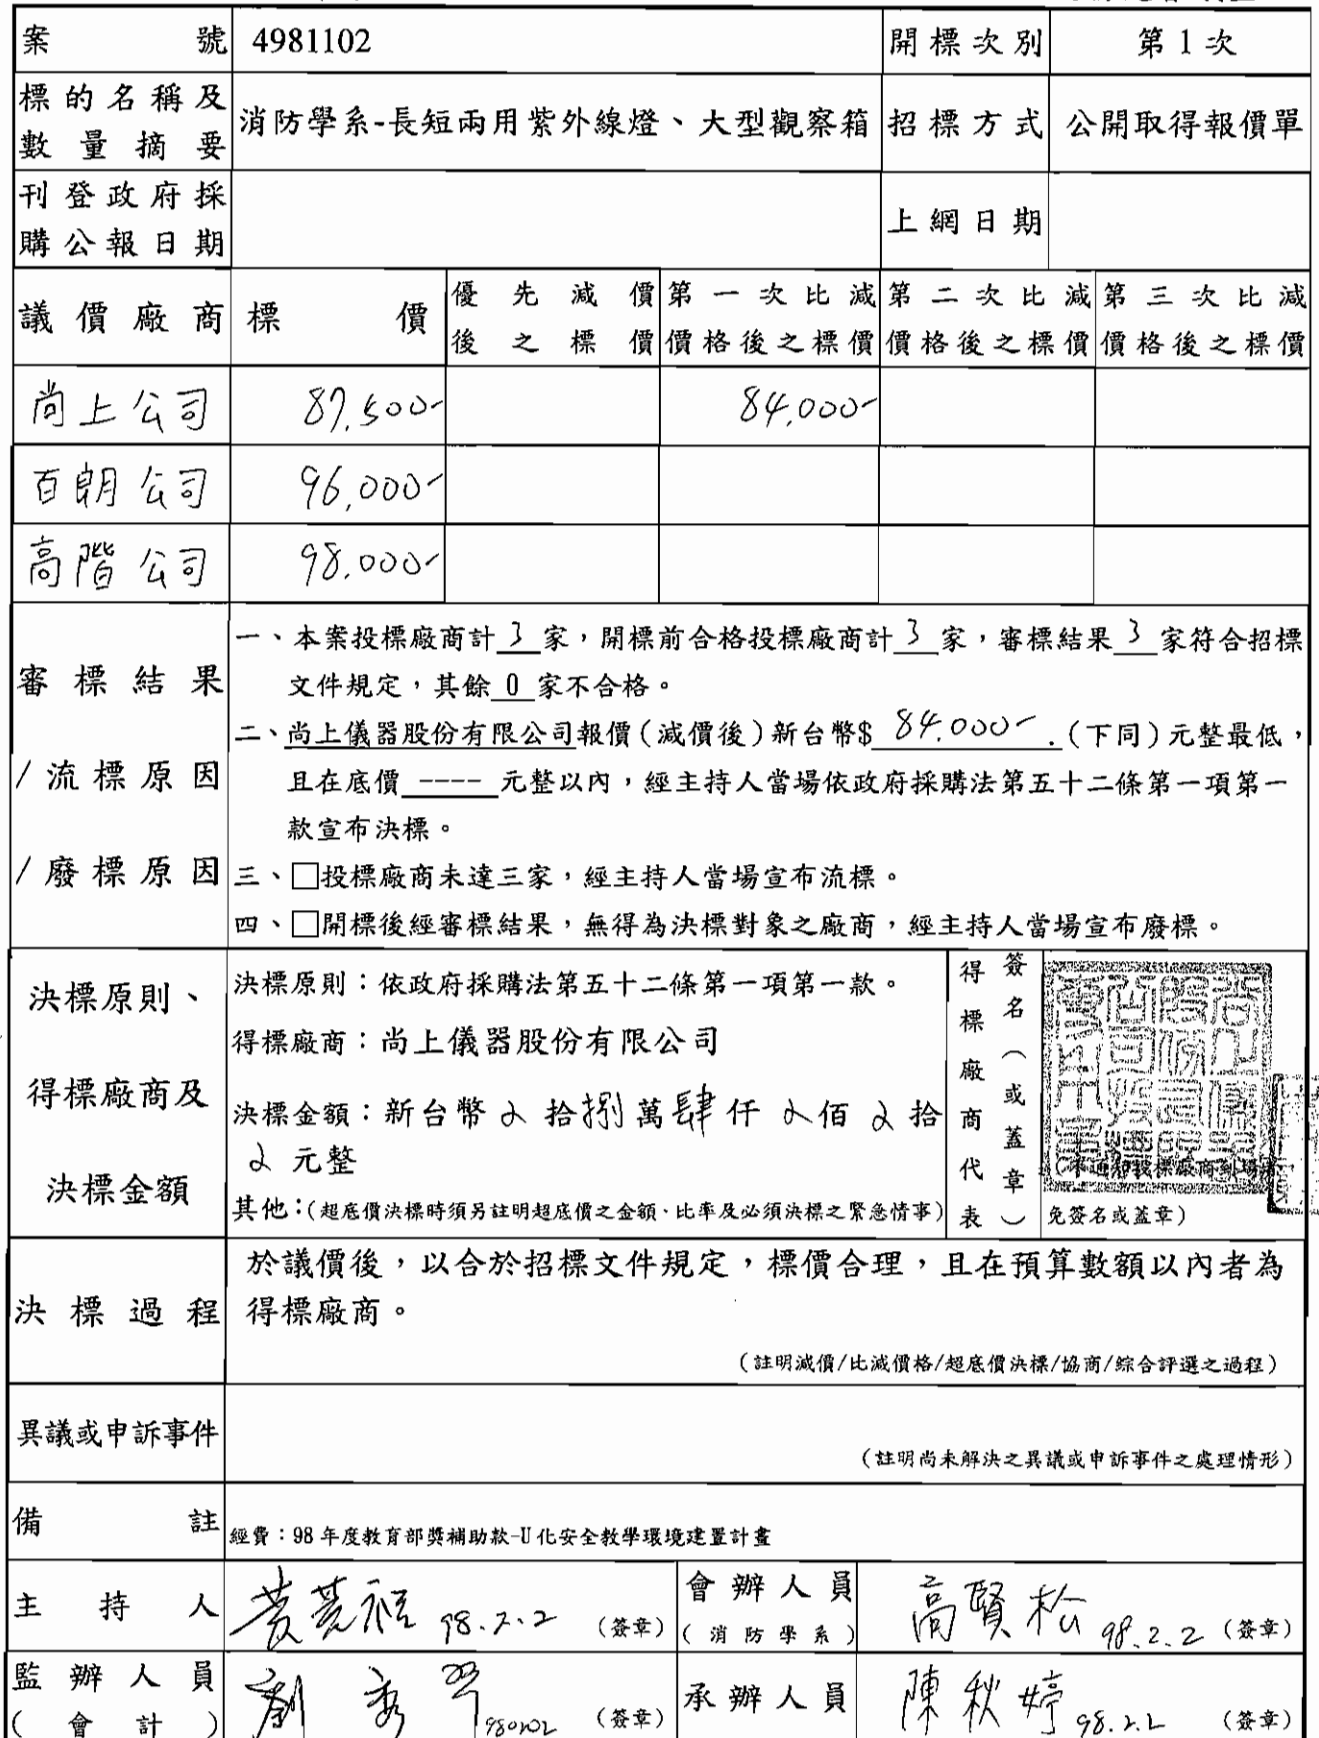 案號 4981102 開標次別 第1次
標的名稱及
數量摘要
消防學系-長短兩用紫外線燈、大型觀察箱 招標方式 公開取得報價單
刊登政府採
購公報日期
上網日期
議價廠商 標價 優先減價 第一次比減 第二次比減 第三次比減
後之標價 價格後之標價 價格後之標價 價格後之標價
尚上公司 87,500- 84,000-
百朗公司 96,000-
高階公司 98,000-
審標結果
/流標原因
/廢標原因
一、本案投標廠商計 3 家,開標前合格投標廠商計 3 家,審標結果 3 家符合招標
文件規定,其餘 0 家不合格。
二、尚上儀器股份有限公司報價(減價後)新台幣$ 84,000- .(下同)元整最低,
且在底價 ---- 元整以內,經主持人當場依政府採購法第五十二條第一項第一
款宣布決標。
三、□投標廠商未達三家,經主持人當場宣布流標。
四、□開標後經審標結果,無得為決標對象之廠商,經主持人當場宣布廢標。
決標原則、
得標廠商及
決標金額
決標原則:依政府採購法第五十二條第一項第一款。
得標廠商:尚上儀器股份有限公司
決標金額:新台幣 拾捌萬肆仟 佰 拾
元整
其他:(超底價決標時須另註明超底價之金額、比率及必須決標之緊急情事)
得標廠商代表
簽名(或蓋章)
(不通知投標廠商到場者
免簽名或蓋章)
決標過程
於議價後,以合於招標文件規定,標價合理,且在預算數額以內者為
得標廠商。
(註明減價/比減價格/超底價決標/協商/綜合評選之過程)
異議或申訴事件
(註明尚未解決之異議或申訴事件之處理情形)
備註
經費:98年度教育部獎補助款-U化安全教學環境建置計畫
主持人 98.2.2 (簽章) 會辦人員 高賢松 98.2.2 (簽章)
(消防學系)
監辦人員 劉秀 980202 (簽章) 承辦人員 陳秋婷 98.2.2 (簽章)
(會計)